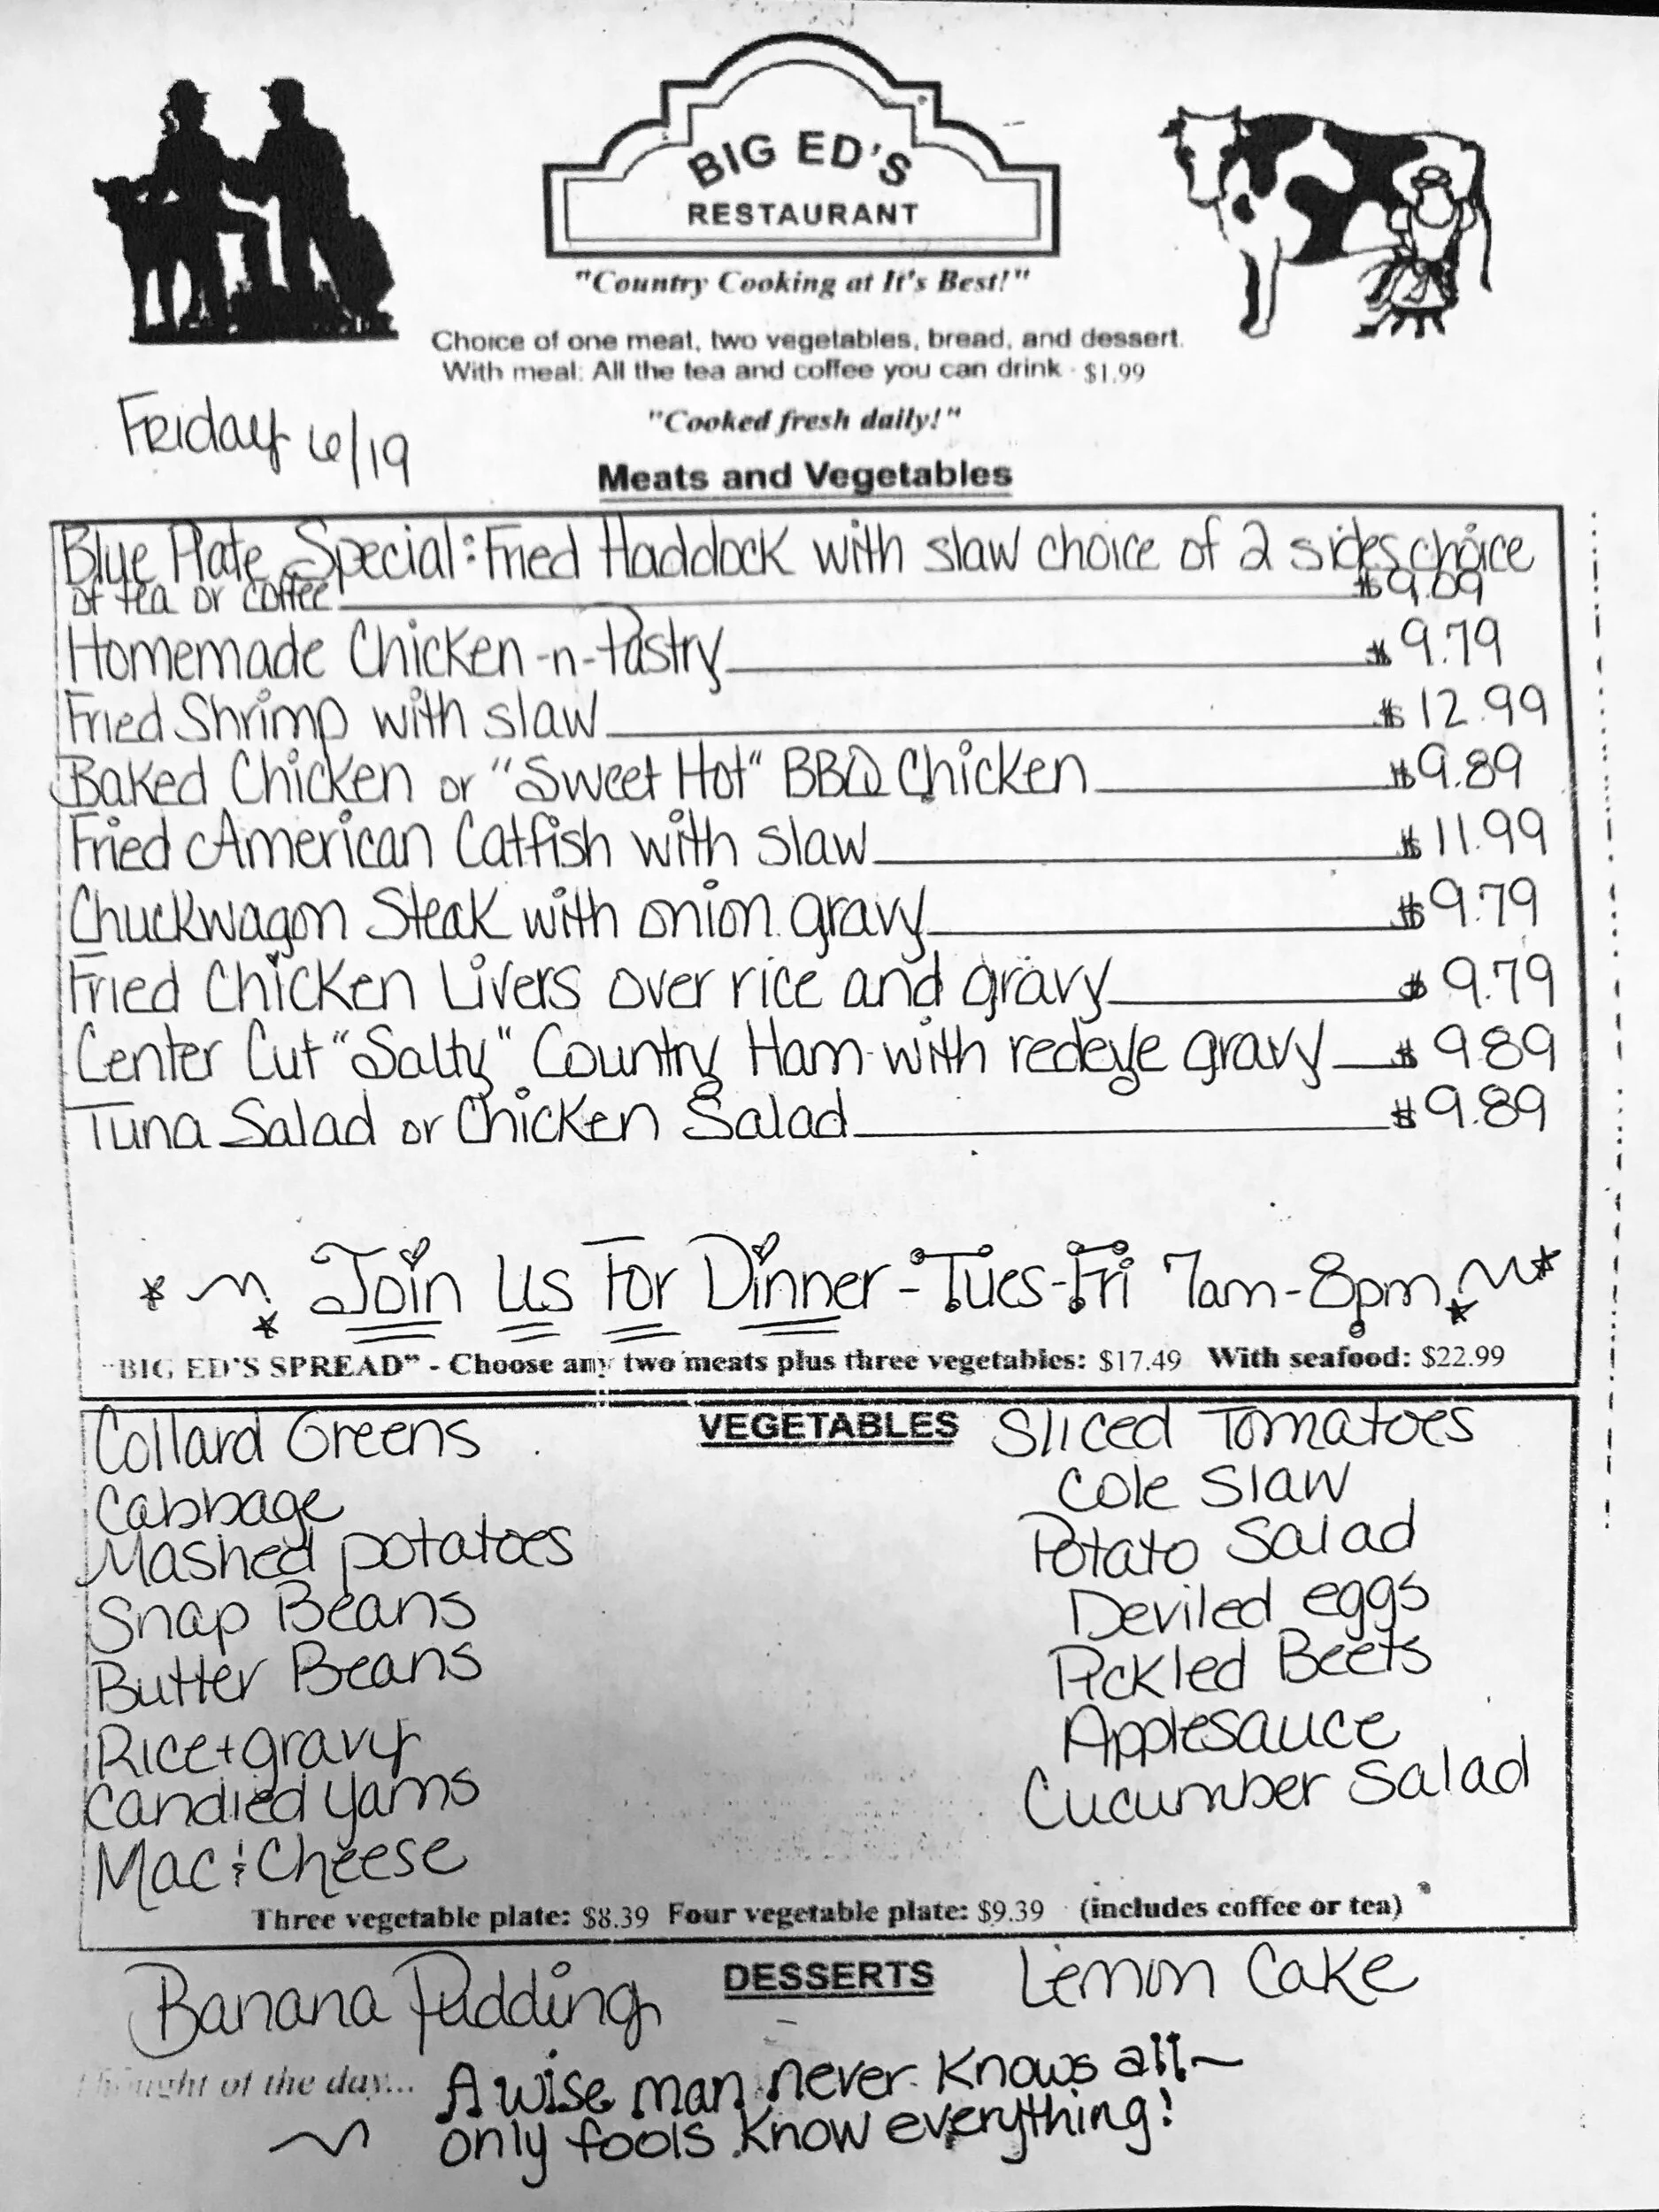 BIG ED'S
RESTAURANT
"Country Cooking at It's Best!"
Choice of one meat, two vegetables, bread, and dessert.
With meal: All the tea and coffee you can drink - $1.99
"Cooked fresh daily!"
Friday 6/19
Meats and Vegetables
Blue Plate Special: Fried Haddock with slaw choice of 2 sides choice
of tea or coffee $9.09
Homemade Chicken-n-Pastry $9.79
Fried Shrimp with slaw $12.99
Baked Chicken or "Sweet Hot" BBQ Chicken $9.89
Fried American Catfish with slaw $11.99
Chuckwagon Steak with onion gravy $9.79
Fried Chicken Livers over rice and gravy $9.79
Center Cut "Salty" Country Ham with redeye gravy $9.89
Tuna Salad or Chicken Salad $9.89
Join Us For Dinner - Tues-Fri 7am-8pm
"BIG ED'S SPREAD" - Choose any two meats plus three vegetables: $17.49 With seafood: $22.99
VEGETABLES
Collard Greens
Cabbage
Mashed potatoes
Snap Beans
Butter Beans
Rice + gravy
Candied yams
Mac & Cheese
Sliced Tomatoes
Cole Slaw
Potato Salad
Deviled eggs
Pickled Beets
Applesauce
Cucumber Salad
Three vegetable plate: $8.39 Four vegetable plate: $9.39 (includes coffee or tea)
DESSERTS
Banana Pudding
Lemon Cake
Thought of the day... A wise man never knows all~
only fools know everything!